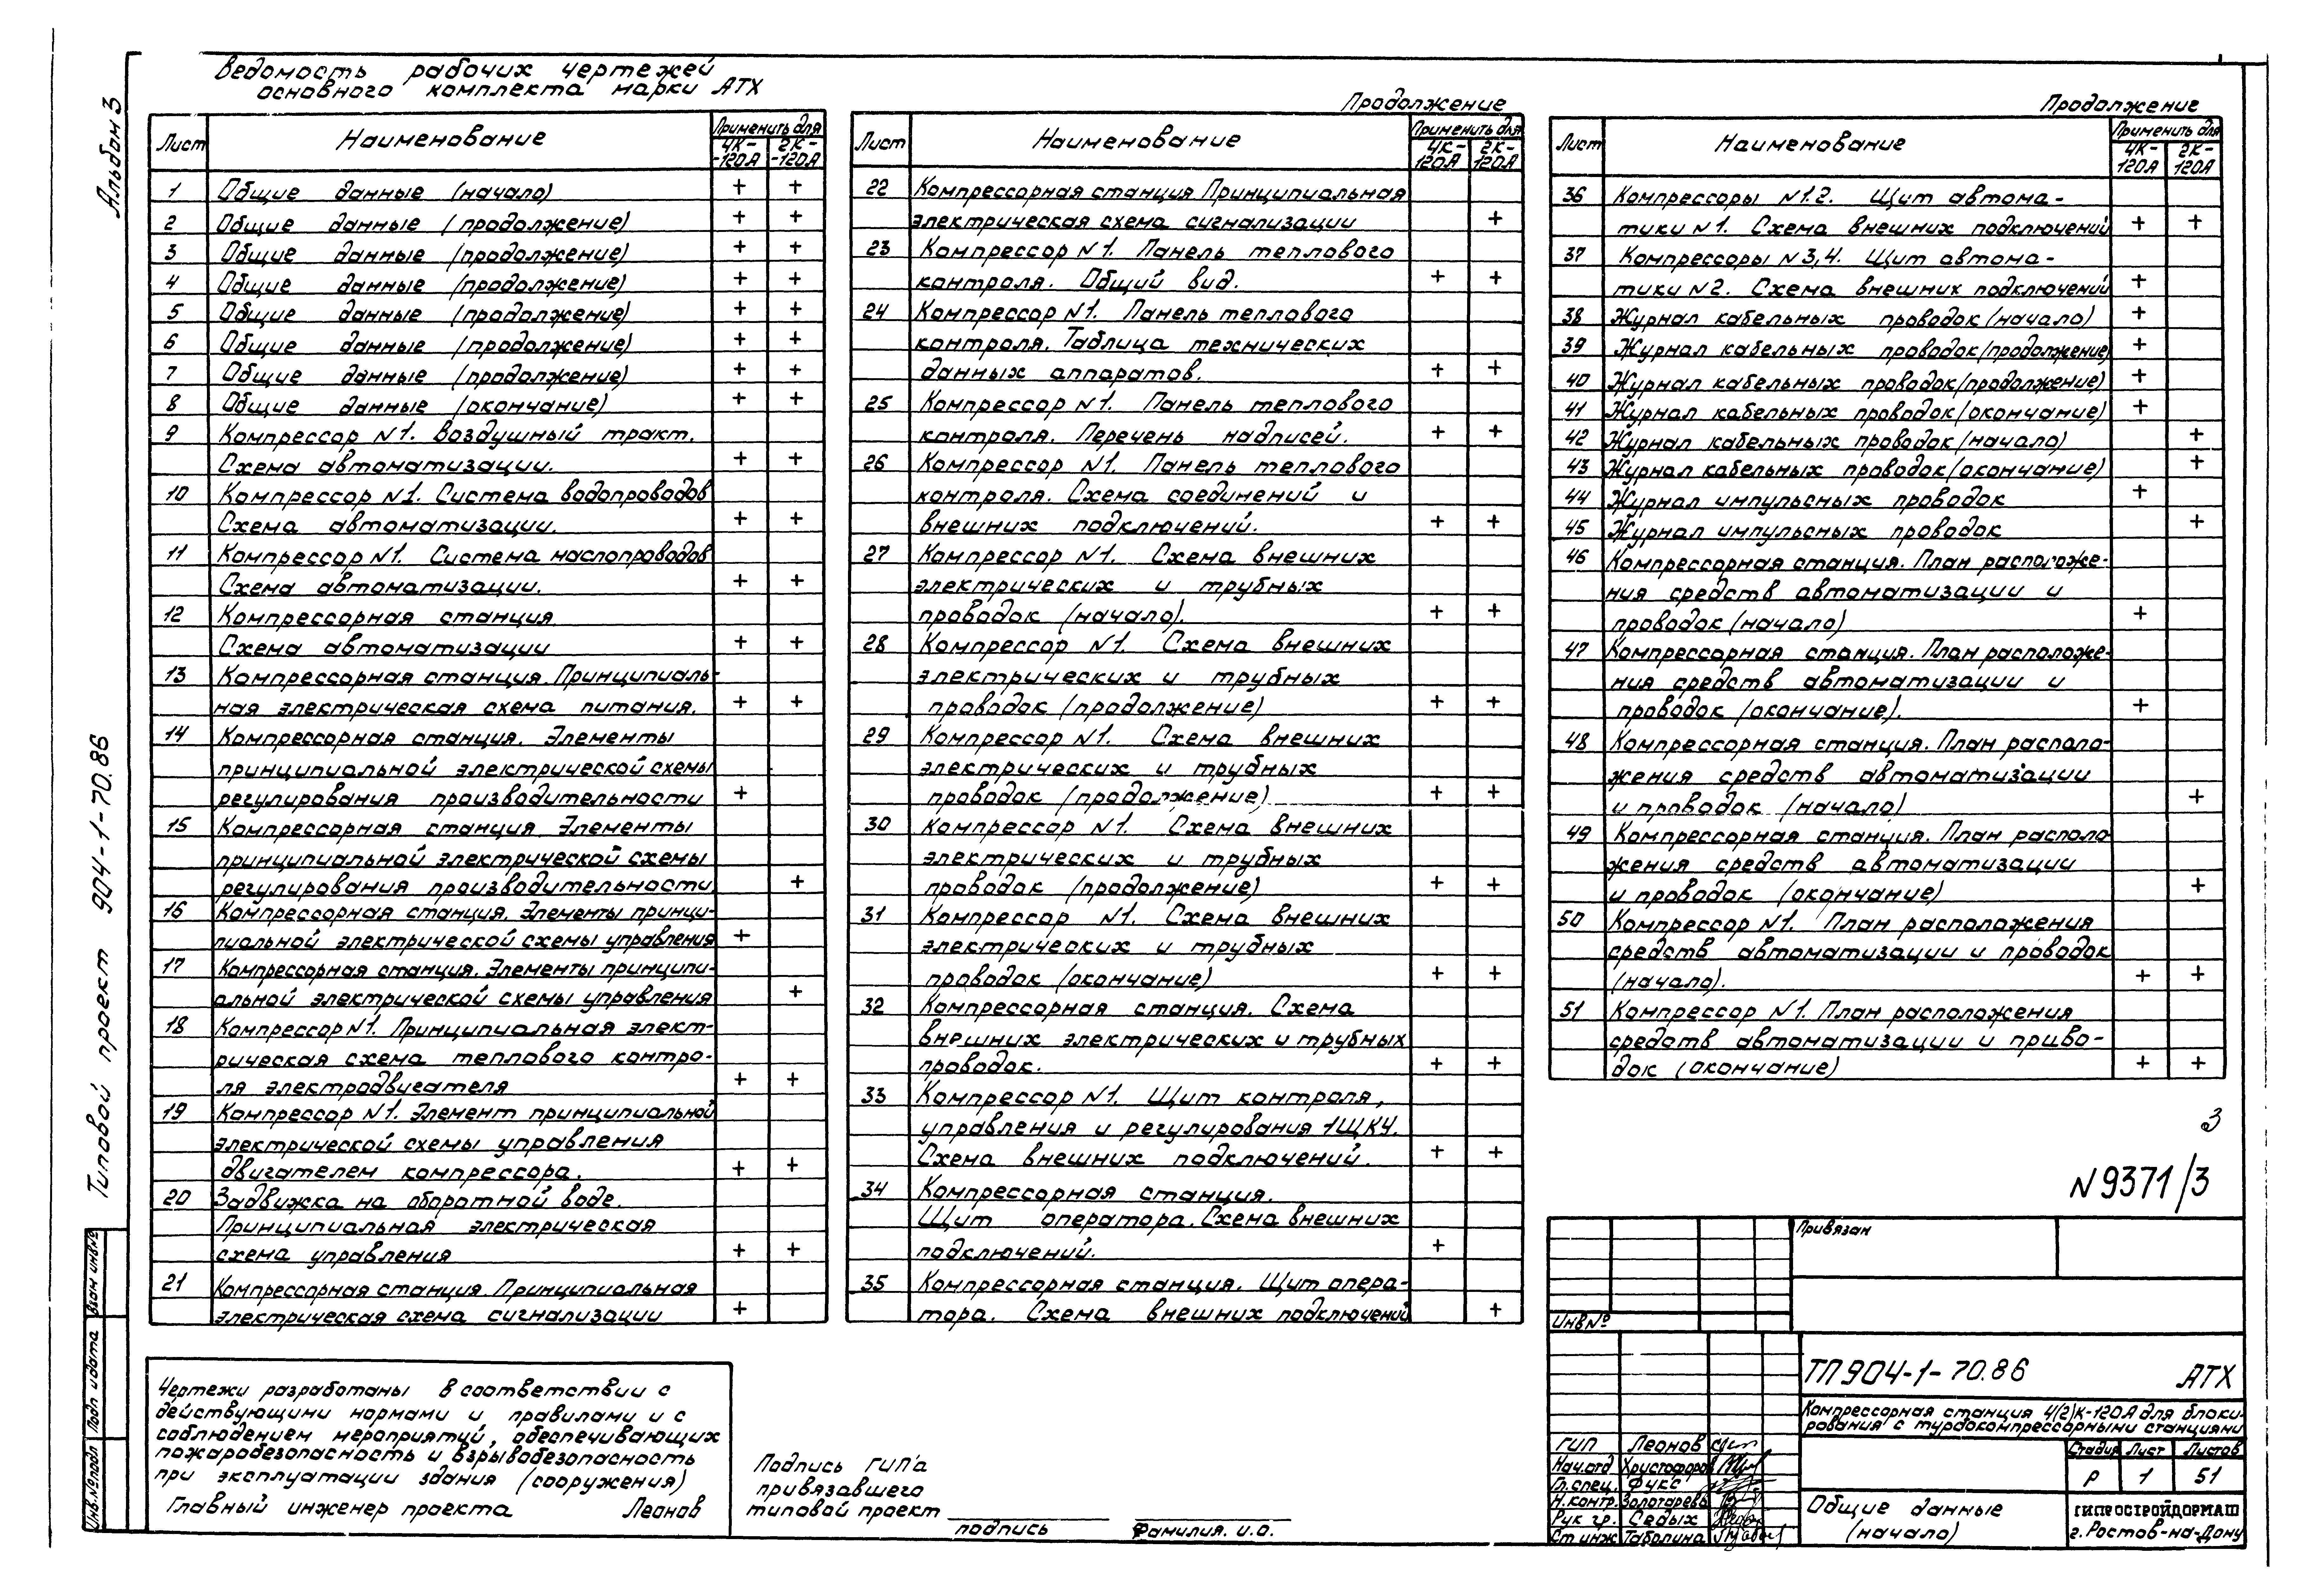 Альбом 3
Типовой проект 904-1-70.86
Ведомость рабочих чертежей
основного комплекта марки АТХ
Лист Наименование Применить для
4К-120А 2К-120А
1 Общие данные (начало) + +
2 Общие данные (продолжение) + +
3 Общие данные (продолжение) + +
4 Общие данные (продолжение) + +
5 Общие данные (продолжение) + +
6 Общие данные (продолжение) + +
7 Общие данные (продолжение) + +
8 Общие данные (окончание) + +
9 Компрессор N1. Воздушный тракт.
Схема автоматизации. + +
10 Компрессор N1. Система водопроводов
Схема автоматизации. + +
11 Компрессор N1. Система маслопроводов
Схема автоматизации. + +
12 Компрессорная станция
Схема автоматизации + +
13 Компрессорная станция. Принципиаль-
ная электрическая схема питания. + +
14 Компрессорная станция. Элементы
принципиальной электрической схемы
регулирования производительности +
15 Компрессорная станция. Элементы
принципиальной электрической схемы
регулирования производительности +
16 Компрессорная станция. Элементы принци-
пиальной электрической схемы управления +
17 Компрессорная станция. Элементы принципи-
альной электрической схемы управления +
18 Компрессор N1. Принципиальная элект-
рическая схема теплового контро-
ля электродвигателя + +
19 Компрессор N1. Элемент принципиальной
электрической схемы управления
двигателем компрессора. + +
20 Задвижка на оборотной воде.
Принципиальная электрическая
схема управления + +
21 Компрессорная станция. Принципиальная
электрическая схема сигнализации +
Продолжение
Лист Наименование Применить для
4К-120А 2К-120А
22 Компрессорная станция Принципиальная
электрическая схема сигнализации +
23 Компрессор N1. Панель теплового
контроля. Общий вид. + +
24 Компрессор N1. Панель теплового
контроля. Таблица технических
данных аппаратов. + +
25 Компрессор N1. Панель теплового
контроля. Перечень надписей. + +
26 Компрессор N1. Панель теплового
контроля. Схема соединений и
внешних подключений. + +
27 Компрессор N1. Схема внешних
электрических и трубных
проводок (начало). + +
28 Компрессор N1. Схема внешних
электрических и трубных
проводок (продолжение) + +
29 Компрессор N1. Схема внешних
электрических и трубных
проводок (продолжение) + +
30 Компрессор N1. Схема внешних
электрических и трубных
проводок (продолжение) + +
31 Компрессор N1. Схема внешних
электрических и трубных
проводок (окончание) + +
32 Компрессорная станция. Схема
внешних электрических и трубных
проводок. + +
33 Компрессор N1. Щит контроля,
управления и регулирования 1ЩКУ.
Схема внешних подключений. + +
34 Компрессорная станция.
Щит оператора. Схема внешних
подключений. +
35 Компрессорная станция. Щит опера-
тора. Схема внешних подключений +
Продолжение
Лист Наименование Применить для
4К-120А 2К-120А
36 Компрессоры N1.2. Щит автома-
тики N1. Схема внешних подключений + +
37 Компрессоры N3,4. Щит автома-
тики N2. Схема внешних подключений +
38 Журнал кабельных проводок (начало) +
39 Журнал кабельных проводок (продолжение) +
40 Журнал кабельных проводок (продолжение) +
41 Журнал кабельных проводок (окончание) +
42 Журнал кабельных проводок (начало) +
43 Журнал кабельных проводок (окончание) +
44 Журнал импульсных проводок +
45 Журнал импульсных проводок +
46 Компрессорная станция. План расположе-
ния средств автоматизации и
проводок (начало) +
47 Компрессорная станция. План расположе-
ния средств автоматизации и
проводок (окончание). +
48 Компрессорная станция. План располо-
жения средств автоматизации
и проводок (начало) +
49 Компрессорная станция. План располо-
жения средств автоматизации
и проводок (окончание) +
50 Компрессор N1. План расположения
средств автоматизации и проводок
(начало). + +
51 Компрессор N1. План расположения
средств автоматизации и приво-
док (окончание) + +
3
N9371/3
Чертежи разработаны в соответствии с
действующими нормами и правилами и с
соблюдением мероприятий, обеспечивающих
пожаробезопасность и взрывобезопасность
при эксплуатации здания (сооружения)
Главный инженер проекта Леонов
Подпись ГИП'а
привязавшего
типовой проект
подпись фамилия. и.о.
Привязан
Инв№
ТП904-1-70.86 АТХ
Компрессорная станция 4(2)К-120А для блоки-
рования с турбокомпрессорными станциями
ГИП Леонов
Нач.отд Христофоров
Гл.спец. Фукс
Н.контр. Золотарева
Рук гр. Седых
Ст инж Таболина
Стадия Лист Листов
Р 1 51
Общие данные
(начало)
ГИПРОСТРОЙДОРМАШ
г.Ростов-на-Дону
Взам инв№
Подп и дата
Инв.№подл